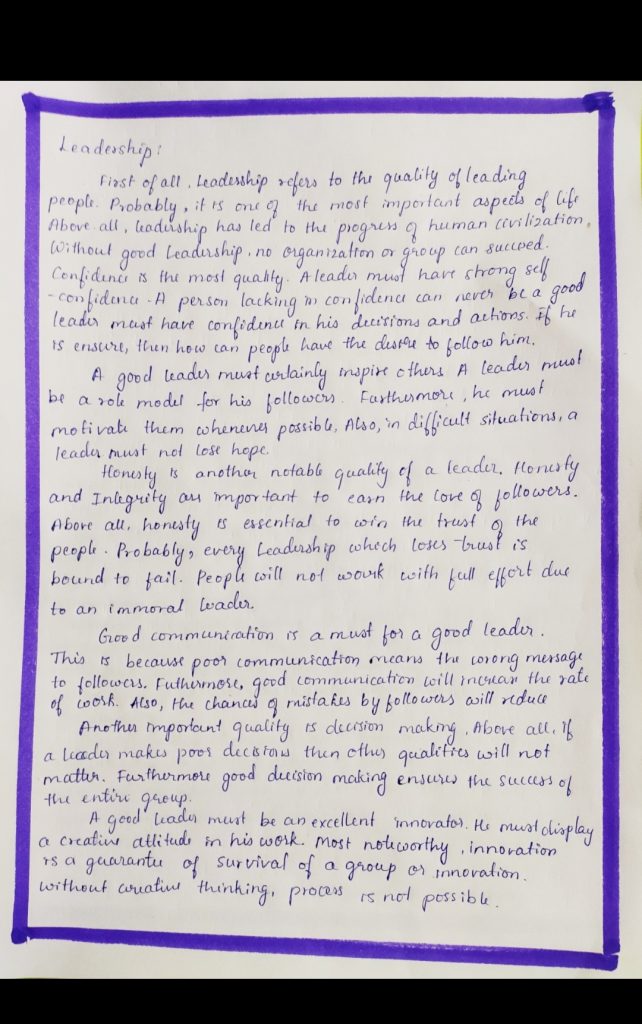 Leadership:
First of all, Leadership refers to the quality of leading
people. Probably, it is one of the most important aspects of life
Above all, leadership has led to the progress of human civilization.
Without good Leadership, no organization or group can succeed.
Confidence is the most quality. A leader must have strong self
-confidence. A person lacking in confidence can never be a good
leader must have confidence in his decisions and actions. If he
is ensure, then how can people have the desire to follow him.
A good leader must certainly inspire others. A leader must
be a role model for his followers. Furthermore, he must
motivate them whenever possible, Also, in difficult situations, a
leader must not lose hope.
Honesty is another notable quality of a leader. Honesty
and Integrity are important to earn the love of followers.
Above all, honesty is essential to win the trust of the
people. Probably, every Leadership which loses trust is
bound to fail. People will not work with full effort due
to an immoral leader.
Good communication is a must for a good leader.
This is because poor communication means the wrong message
to followers. Futhermore, good communication will increase the rate
of work. Also, the chances of mistakes by followers will reduce
Another important quality is decision making. Above all, if
a leader makes poor decisions then other qualities will not
matter. Furthermore good decision making ensures the success of
the entire group.
A good leader must be an excellent innovator. He must display
a creative attitude in his work. Most noteworthy, innovation
is a guarantee of survival of a group or innovation.
without creative thinking, process is not possible.